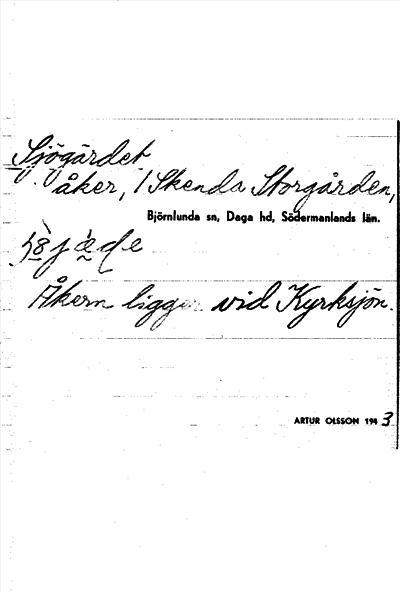 Sjögärdet
åker, 1 Skenda Storgården,
Björnlunda sn, Daga hd, Södermanlands län.
Åkern ligger vid Kyrksjön.
ARTUR OLSSON 1943